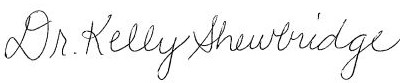 Dr. Kelly Shewbridge